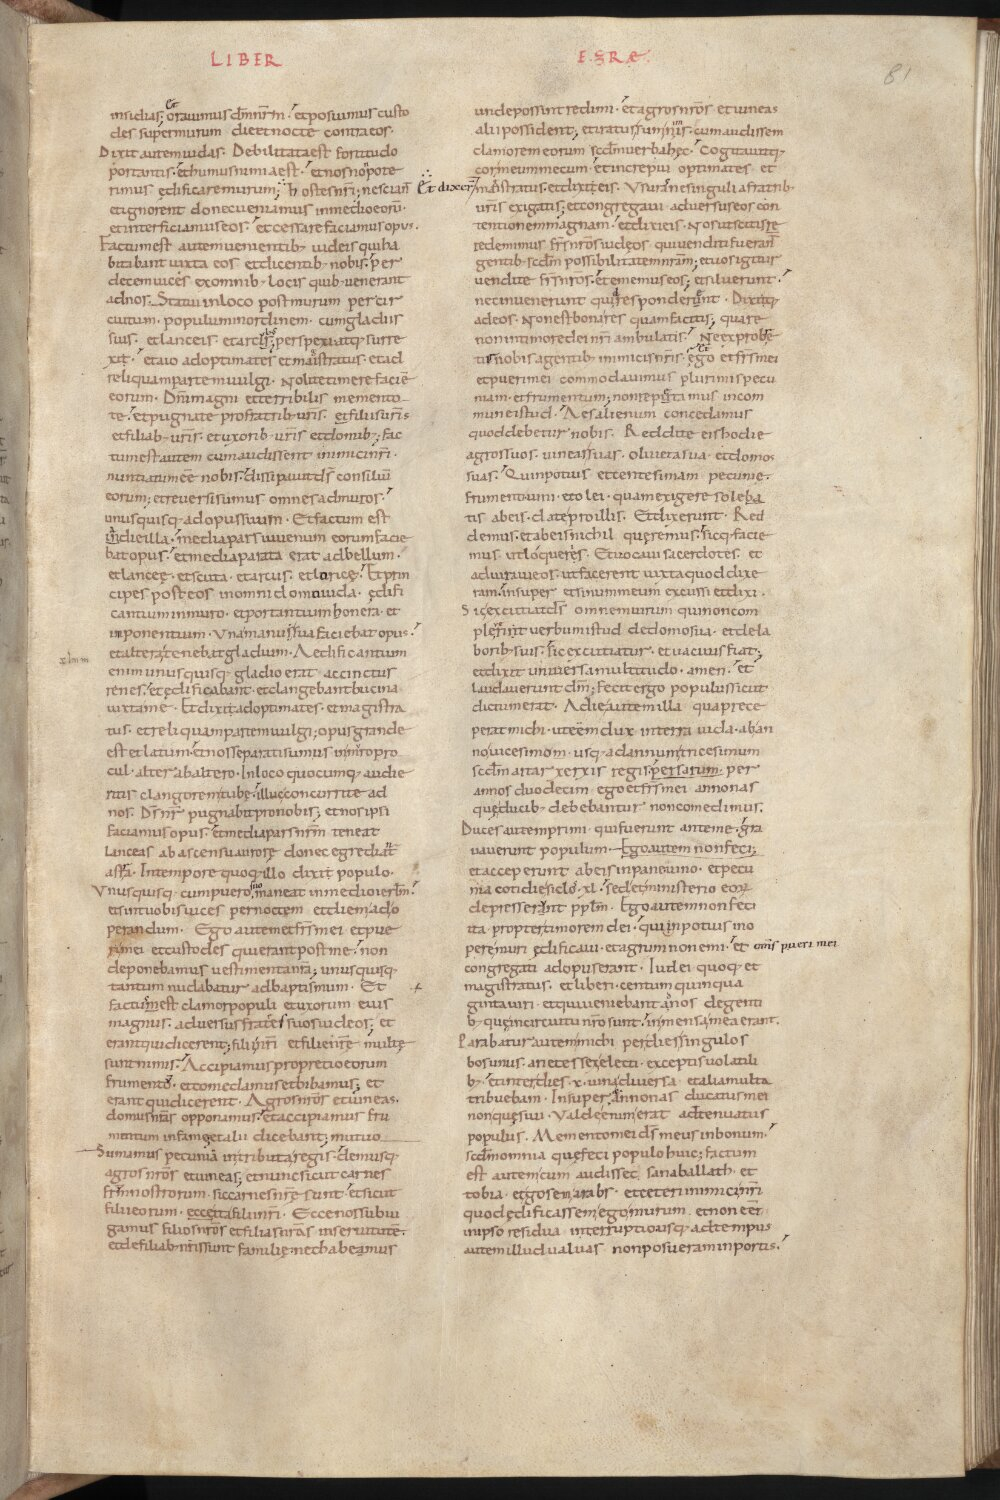 LIBER
insidias; Et orauimus dm̄ nr̄m. et posuimus custo
des super murum die et nocte contra eos.
Dixit autem iudas. Debilitata est fortitudo
portantis. et humus nimia est. et nos n̄ pote
rimus ędificare murum; Et dixer̄ hostes nr̄i; nesciant
et ignorent donec ueniamus in medio eorū.
et interficiamus eos. et cessare faciamus opus.
Factum est autem uenientib; iudeis qui ha
bitabant iuxta eos et dicentib; nobis. per
decem uices ex omnib; locis quib; uenerant
ad nos. Statui in loco post murum per cir
cuitum. populum in ordinem. cum gladiis
suis. et lanceis et arcib;; perspexi atq; surre
xit. et aio ad optimates et magistratus. et ad
reliquam partem uulgi. Nolite timere faciē
eorum. Dn̄i magni et terribilis memento
te. et pugnate pro fratrib; uris. et filiis uris
et filiab; uris. et uxorib; uris et domib;; Fac
tum est autem cum audissent inimici nr̄i.
nuntiatum ēē nobis. dissipauit ds̄ consiliū
eorum; et reuersi sumus omnes ad muros.
unusquisq; ad opus suum. Et factum est
in die illa. media pars iuuenum eorum facie
bat opus. et media parata erat ad bellum.
et lanceę. et scuta. et arcus. et loricę. Et prin
cipes post eos in omni domo iuda. ędifi
cantium in muro. et portantium honera. et
imponentium. Vna manu sua faciebat opus.
et altera tenebat gladium. Aedificantium
enim unusquisq; gladio erat accinctus
renes. et ędificabant. et clangebant bucina
iuxta me. Et dixi ad optimates. et magistra
tus. et reliquam partem uulgi; opus grande
est et latum. et nos separati sumus in muro pro
cul. alter ab altero. In loco quocumq; audie
ritis clangorem tubę. illuc concurrite ad
nos. Ds̄ nr̄ pugnabit pro nobis; et nos ipsi
faciamus opus. et media pars nr̄m teneat
lanceas ab ascensu aurorę donec egrediant
astra. In tempore quoq; illo dixi populo.
Vnusquisq; cum puero suo maneat in medio ierlm̄.
et sint uobis uices per noctem et diem ad o
perandum. Ego autem et fr̄s mei et pue
ri mei et custodes qui erant post me. non
deponebamus uestimenta nr̄a; unusquisq;
tantum nudabatur ad baptismum. Et
factus est clamor populi et uxorum eius
magnus. aduersus fratres suos iudeos. et
erant qui dicerent; filii nr̄i et filię nr̄ę multę
sunt nimis. Accipiamus pro pretio eorum
frumentū. et comedamus et bibamus; et
erant qui dicerent. Agros nr̄os et uineas.
domus nr̄as opponamus. et accipiamus fru
mentum in fame; et alii dicebant; mutuo
Sumamus pecunia in tributa regis. demusq;
agros nr̄os et uineas; et nunc sicut carnes
fr̄m nostrorum. sic carnes nr̄ę sunt. et sicut
filii eorum. ecce ita filii nr̄i. Ecce nos subiu
gamus filios nr̄os et filias nr̄as in seruitutē.
et de filiab; nr̄is sunt familię. nec habeamus
ESRAE
81
unde possint redimi. et agros nr̄os et uineas
alii possident; et iratus sum nimis. cum audissem
clamorem eorum scd̄m uerba hęc. Cogitauitq;
cor meum mecum. et increpui optimates et
magistratus. et dixi eis. Vsuras ne singuli a fratrib;
uris exigatis; et congregaui aduersus eos con
tentionem magnam. et dixi eis. Nos ut scitis re
demimus fr̄s nr̄os iudeos qui uenditi fueran̄
gentib; scd̄m possibilitatem nr̄am; et uos igitur
uendite fr̄s nr̄os. et ememus eos; et siluerunt.
nec inuenerunt quid responderent. Dixitq;
ad eos. Non est bona res quam facitis; quare
non in timore dei nr̄i ambulatis. Ne exprobre
tur nobis a gentib; inimicis nr̄is. Et ego et fr̄s mei
et pueri mei commodauimus plurimis pecu
niam. et frumentum; non repetamus in com
mune istud. Aes alienum concedamus
quod debetur nobis. Reddite eis hodie
agros suos. uineas suas. oliueta sua. et domos
suas. Quin potius et centesimam pecunię.
frumenti uini et olei. quam exigere soleba
tis ab eis. date pro illis. Et dixerunt. Red
demus. et ab eis nichil queremus. sicq; facie
mus. ut loqueris. Et uocaui sacerdotes. et
adiuraui eos. ut facerent iuxta quod dixe
ram. insuper et sinum meum excussi et dixi.
Sic excutiat ds̄ omnem uirum qui non com
pleuerit uerbum istud de domo sua. et de la
borib; suis. sic excutiatur. et uacuus fiat;
et dixit uniuersa multitudo. amen. et
laudauerunt dm̄; fecit ergo populus sicut
dictum erat. A die autem illa qua prece
perat michi. ut eēm dux in terra iuda. ab an
no uicesimo m. usq; ad annum tricesimum
scd̄m artarxerxis regis persarum. per
annos duodecim ego et fr̄s mei annonas
quę ducib; debebantur non comedimus.
Duces autem primi. qui fuerunt ante me. gra
uauerunt populum. Ego autem non feci;
et acceperunt ab eis in pane uino. et pecu
nia cotidie siclos. xl. sed et ministerio eorum
depresserunt pp̄lm. Ego autem non feci
ita. propter timorem dei. qui in potius in o
pere muri ędificaui. et agrum non emi. et om̄s pueri mei
congregati ad opus erant. Iudei quoq; et
magistratus. et liberi. centum quinqua
ginta uiri. et qui ueniebant ad nos de genti
b; quę in circuitu nr̄o sunt. in mensa mea erant.
Parabatur autem michi per dies singulos
bos unus. arietes sex electi. exceptis uolatili
b;. et inter dies. x. uina diuersa et alia multa
tribuebam. Insuper et annonas ducatus mei
non quęsiui. Valde enim erat adtenuatus
populus. Memento mei ds̄ meus in bonum.
scd̄m omnia quę feci populo huic; factum
est autem cum audisset sanaballath. et
tobia. et gosem arabs et ceteri inimici nr̄i
quod ędificassem ego murum. et non eēt
in ipso residua interruptio. usq; ad tempus
autem illud ualuas non posueram in portis.